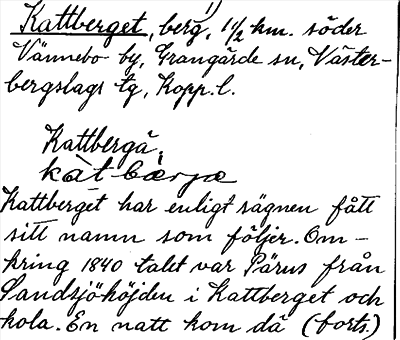 Kattberget, berg, 1) 1 1/2 km. söder
Vännebo by, Grangärde sn, Väster-
bergslags tg, Kopp. l.
Kattbergä,
kàt-bærjæ
Kattberget har enligt sägnen fått
sitt namn som följer. Om-
kring 1840 talet var Pärus från
Sandsjöhöjden i Kattberget och
kola. En natt kom då (forts.)